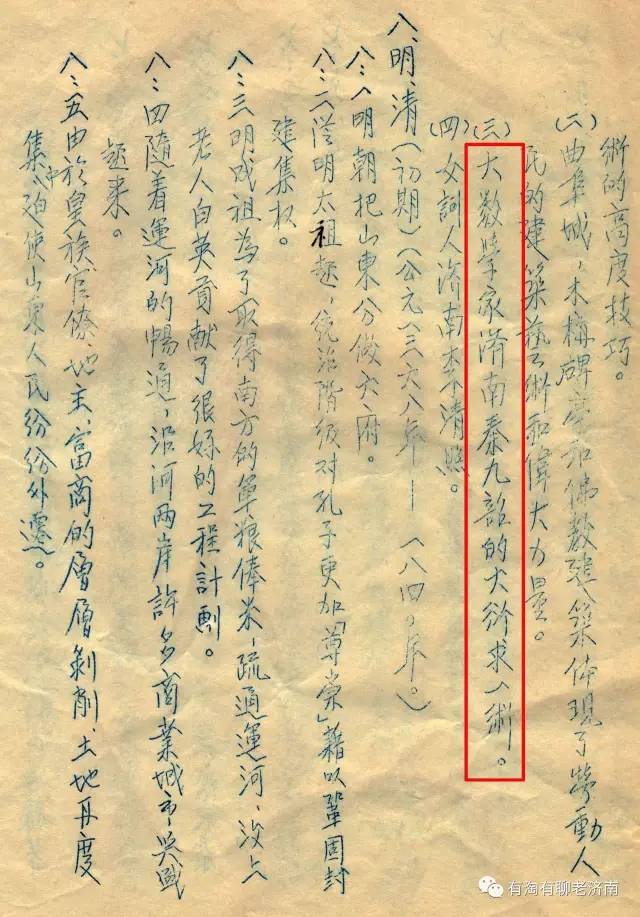 術的高度技巧。
(二)曲阜城,木構碑亭和佛教建築体現了勞動人
民的建築藝術和偉大力量。
(三)大数學家濟南秦九韶的大衍求一術。
(四)女詞人濟南李清照。
八、明、清(初期)(公元一三六八年—一八四〇年。)
八:一明朝把山東分做六府。
八:二從明太祖起,統治階級对孔子更加「尊崇」藉以鞏固封
建集权。
八:三明成祖為了取得南方的軍粮俸米,疏通運河,汶上
老人白英貢献了很好的工程計劃。
八:四隨着運河的暢通,沿河兩岸許多商業城市興盛
起来。
八:五由於皇族官僚、地主、富商的層層剝削、土地再度
集中迫使山東人民份份外遷。
有淘有聊老济南